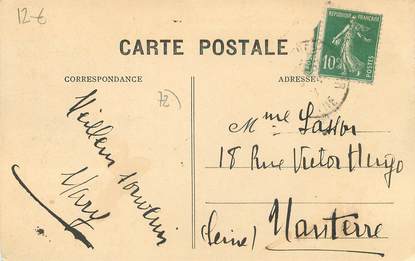 12-€
CARTE POSTALE
RÉPUBLIQUE FRANÇAISE
10c
POSTES
CORRESPONDANCE
ADRESSE
72
souvenir
Mary
Mme
18 Rue Victor Hugo
(Seine) Nanterre